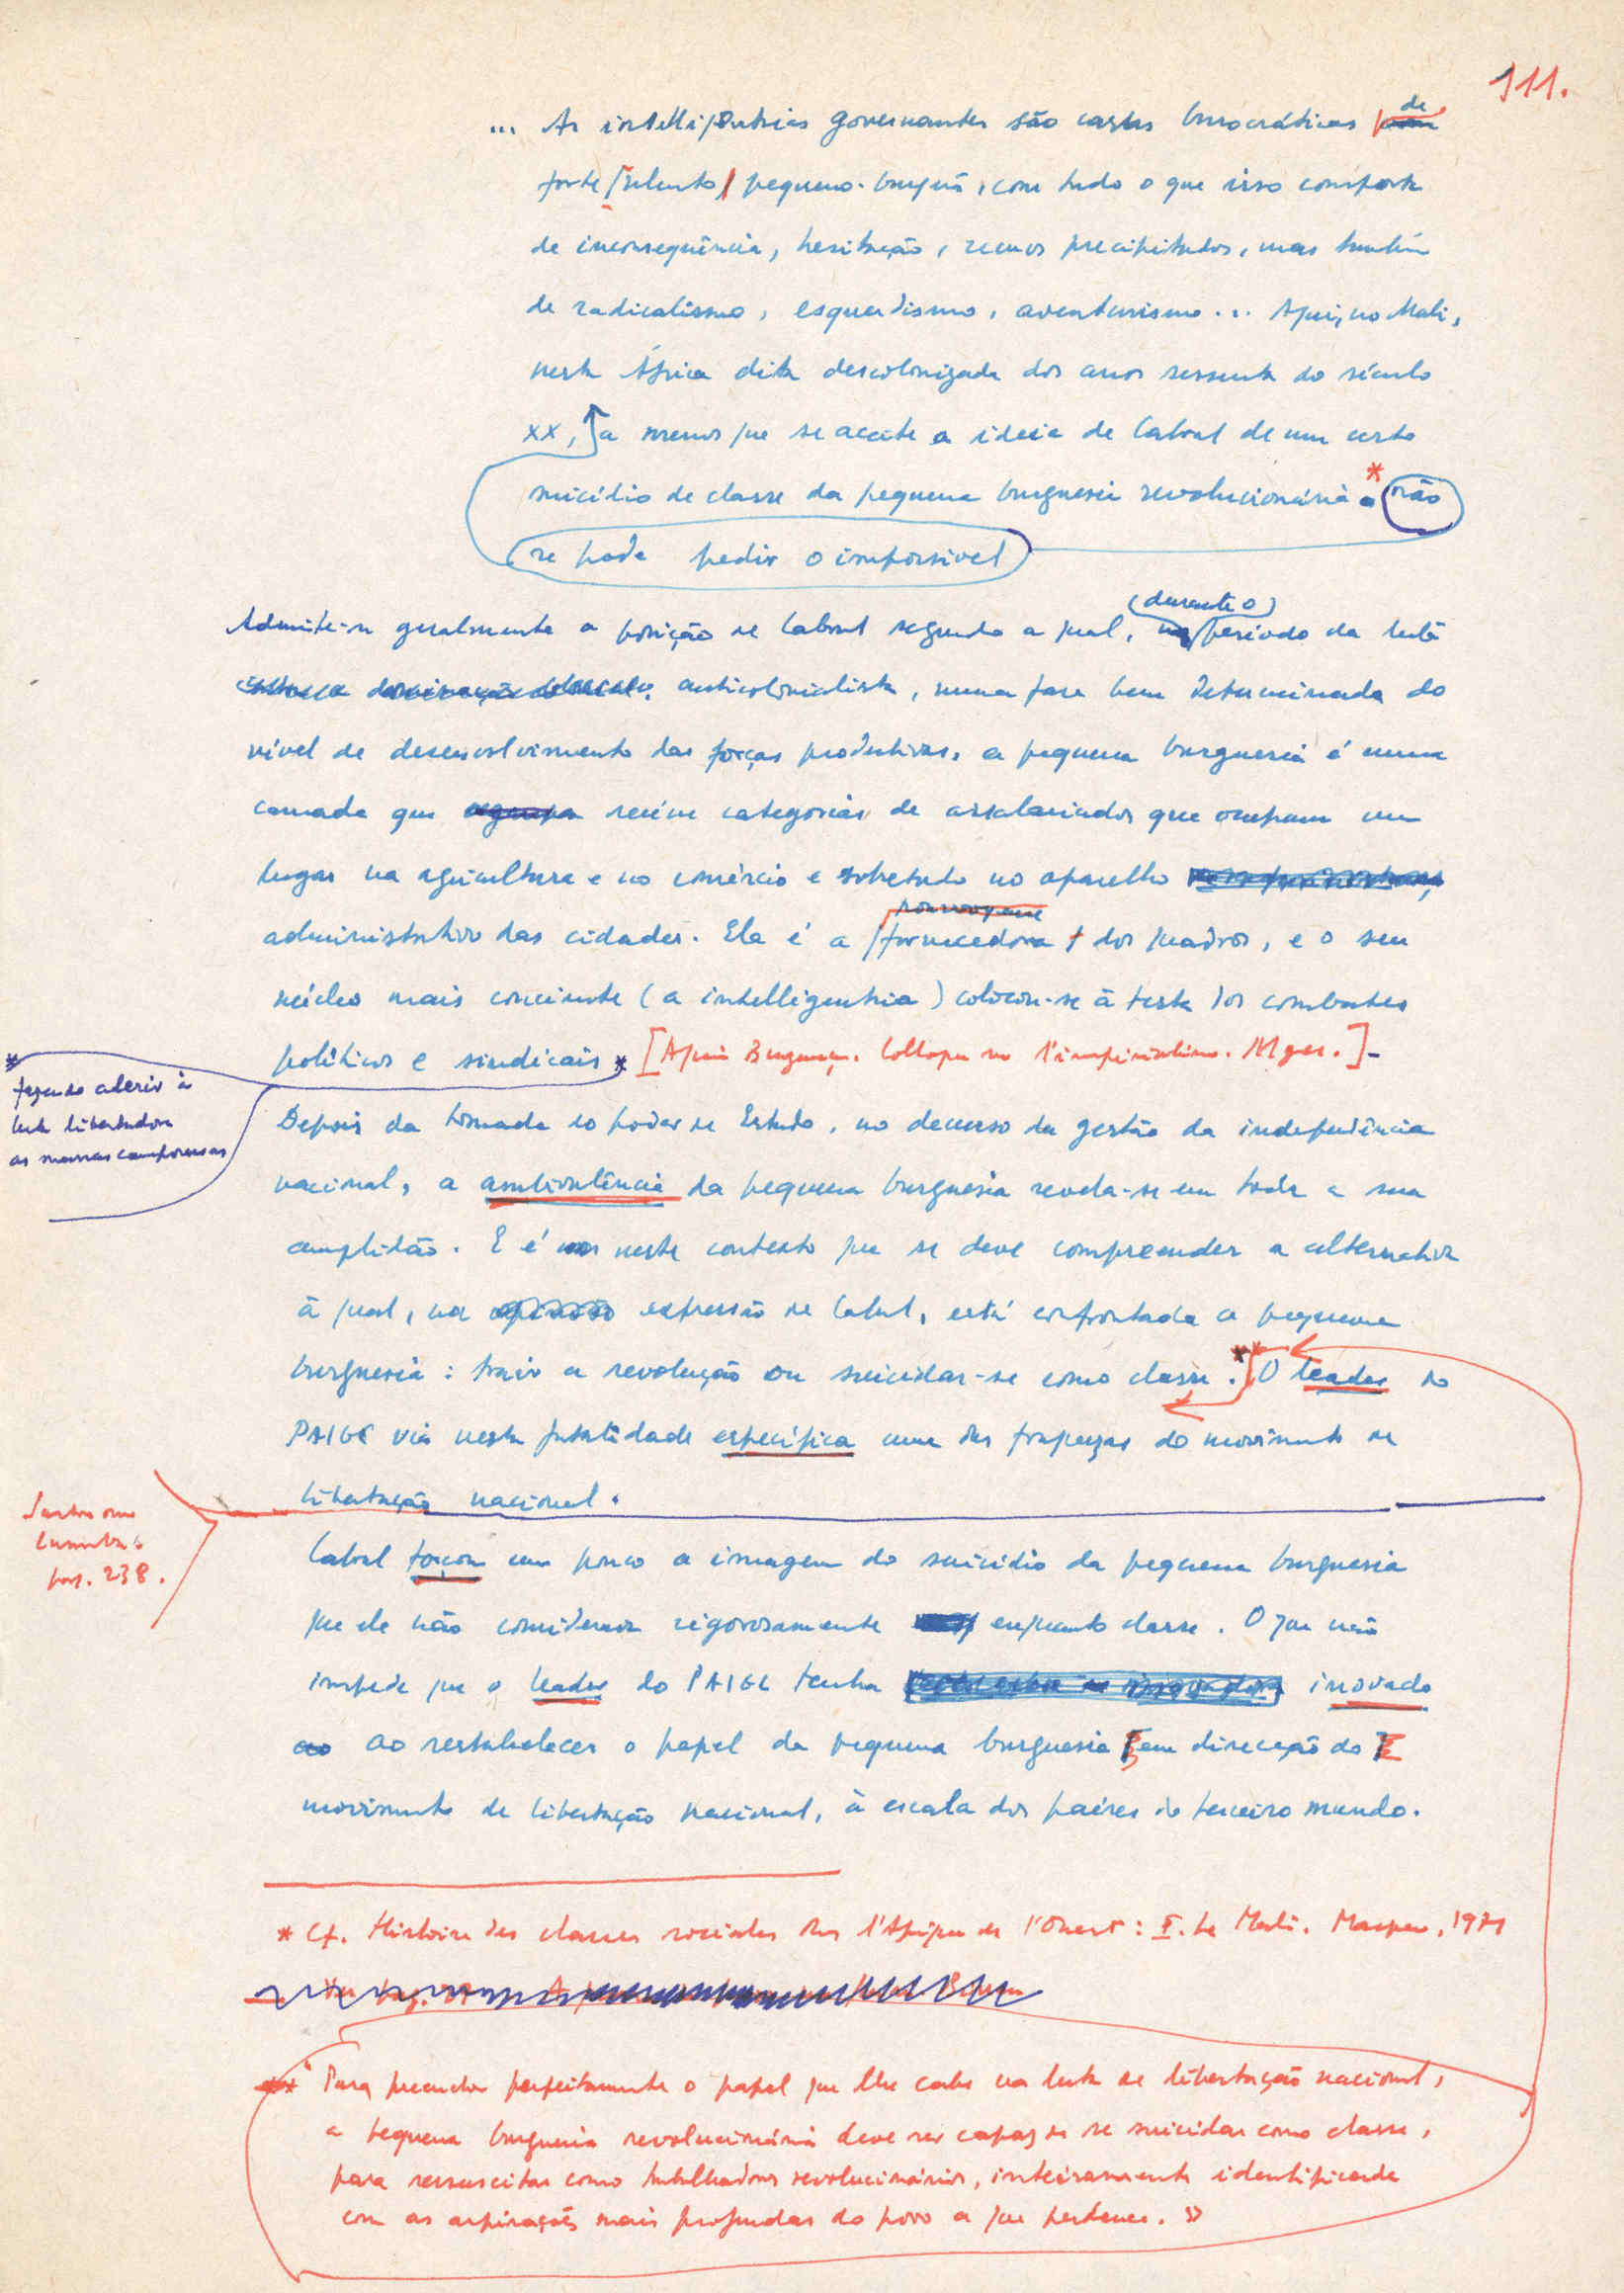 111.
... As intelligentsias governantes são castas burocráticas de
forte talento pequeno-burguês, com tudo o que isso comporta
de inconsequência, hesitação, recuos precipitados, mas também
de radicalismo, esquerdismo, aventurismo... Aqui, no Mali,
nesta África dita descolonizada dos anos sessenta do século
XX, a menos que se aceite a ideia de Cabral de um certo
suicídio de classe da pequena burguesia revolucionária * não
se pode pedir o impossível
(durante o)
Admite-se geralmente a posição de Cabral segundo a qual, no período da luta
anticolonialista, numa fase bem determinada do
nível de desenvolvimento das forças produtivas, a pequena burguesia é uma
camada que reúne categorias de assalariados que ocupam um
lugar na agricultura e no comércio e sobretudo no aparelho
administrativo das cidades. Ela é a fornecedora dos quadros, e o seu
núcleo mais conciente (a intelligentsia) colocou-se à testa dos combates
políticos e sindicais * [
* fazendo aderir à
luta libertadora
as massas camponesas
Depois da tomada do poder de Estado, no decurso da gestão da independência
nacional, a ambivalência da pequena burguesia revela-se em toda a sua
amplidão. E é neste contexto que se deve compreender a alternativa
à qual, na expressão de Cabral, está confrontada a pequena
burguesia: trair a revolução ou suicidar-se como classe.** O leader do
PAIGC via nesta fatalidade específica uma das fraquezas do movimento de
libertação nacional.
pag. 238.
Cabral forçou um pouco a imagem do suicídio da pequena burguesia
que ele não considerava rigorosamente enquanto classe. O que não
impede que o leader do PAIGC tenha inovado
ao restabelecer o papel da pequena burguesia [em direcção do]
movimento de libertação nacional, à escala dos países do terceiro mundo.
* Cf. Histoire des classes sociales dans l'Afrique de l'Ouest: I. Le Mali. Maspero, 1971
** "Para preencher perfeitamente o papel que lhe cabe na luta de libertação nacional,
a pequena burguesia revolucionária deve ser capaz de se suicidar como classe,
para ressuscitar como trabalhadores revolucionários, inteiramente identificada
com as aspirações mais profundas do povo a que pertence. »